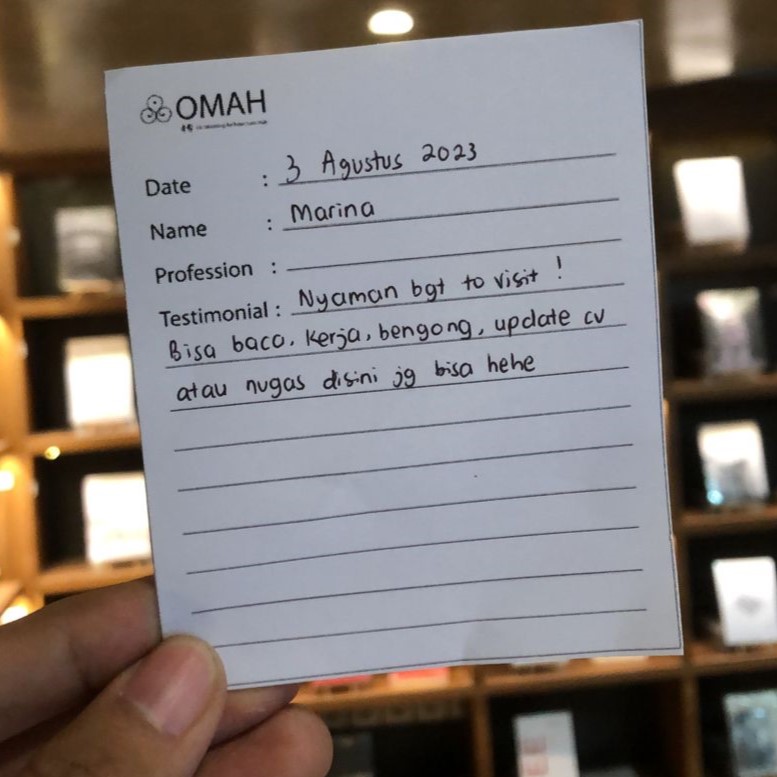 OMAH
Date : 3 Agustus 2023
Name : Marina
Profession :
Testimonial : Nyaman bgt to visit !
Bisa baca, kerja, bengong, update cv
atau nugas disini jg bisa hehe